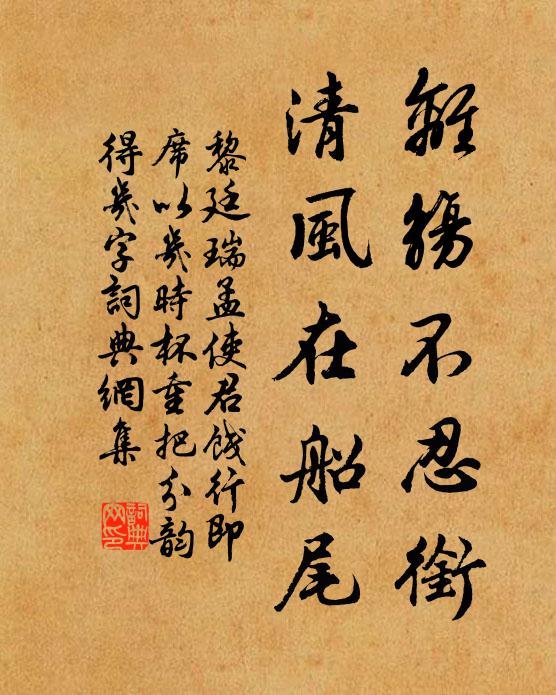 離觴不忍銜
清風在船尾
黎廷瑞孟使君餞行即
席以幾時杯重把分韵
得幾字詞典網集
詞典
网印